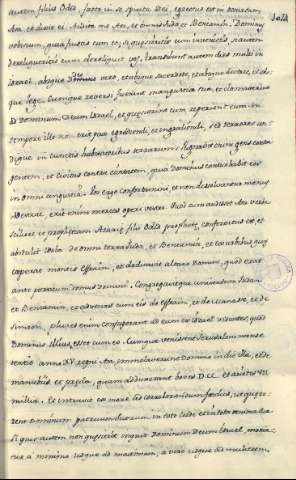 autem filius Oded, facto in se spiritu Dei, egressus est in occursum
Asa, et dixit ei: Audite me Asa, et omnis Juda et Benjamin: Dominus
vobiscum, quia fuistis cum eo; si quæsieritis eum invenietis, si autem
dereliqueritis eum derelinquet vos, transibunt autem dies multi in
Israel absque Domino vero, et absque sacerdote, et absque doctore, et abs-
que lege. Cumque reversi fuerint in angustia sua, et clamaverint
ad Dominum Deum Israel, et quæsierint eum, reperient eum. In
tempore illo non erit pax egredienti, et ingredienti, sed terrores un-
dique in cunctis habitatoribus terrarum: Pugnabit enim gens contra
gentem, et civitas contra civitatem, quia Dominus conturbabit eos
in omni angustia. Vos ergo confortamini, et non dissolvantur manus
vestræ, erit enim merces operi vestro. Quod cum audisset Asa verba
scilicet et prophetiam Azariæ filii Oded prophetæ, confortatus est, et
abstulit idola de omni terra Juda, et Benjamin, et ex urbibus, quas
ceperat montis Effraim, et dedicavit altare Domini, quod erat
ante porticum domus Domini. Congregavitque universum Judam
et Benjamin, et advenas cum eis de Effraim, et de Manasse, et de
Simeon, plures enim confugerant ad eum ex Israel videntes, quod
Dominus illius esset cum eo. Cumque venissent Jerusalem mense
tertio anno XV regni Asa, immolaverunt Domino in die illa, et de
manubiis et præda, quam adduxerant boves DCC et arietes VII
millia. Et intravit ex more ad corroborandum foedus, ut quære-
rent Dominum patrum suorum in toto corde et in tota anima sua:
si quis autem non quæsierit inquit Dominum Deum Israel, moria-
tur a minimo usque ad maximum, a viro usque ad mulierem.